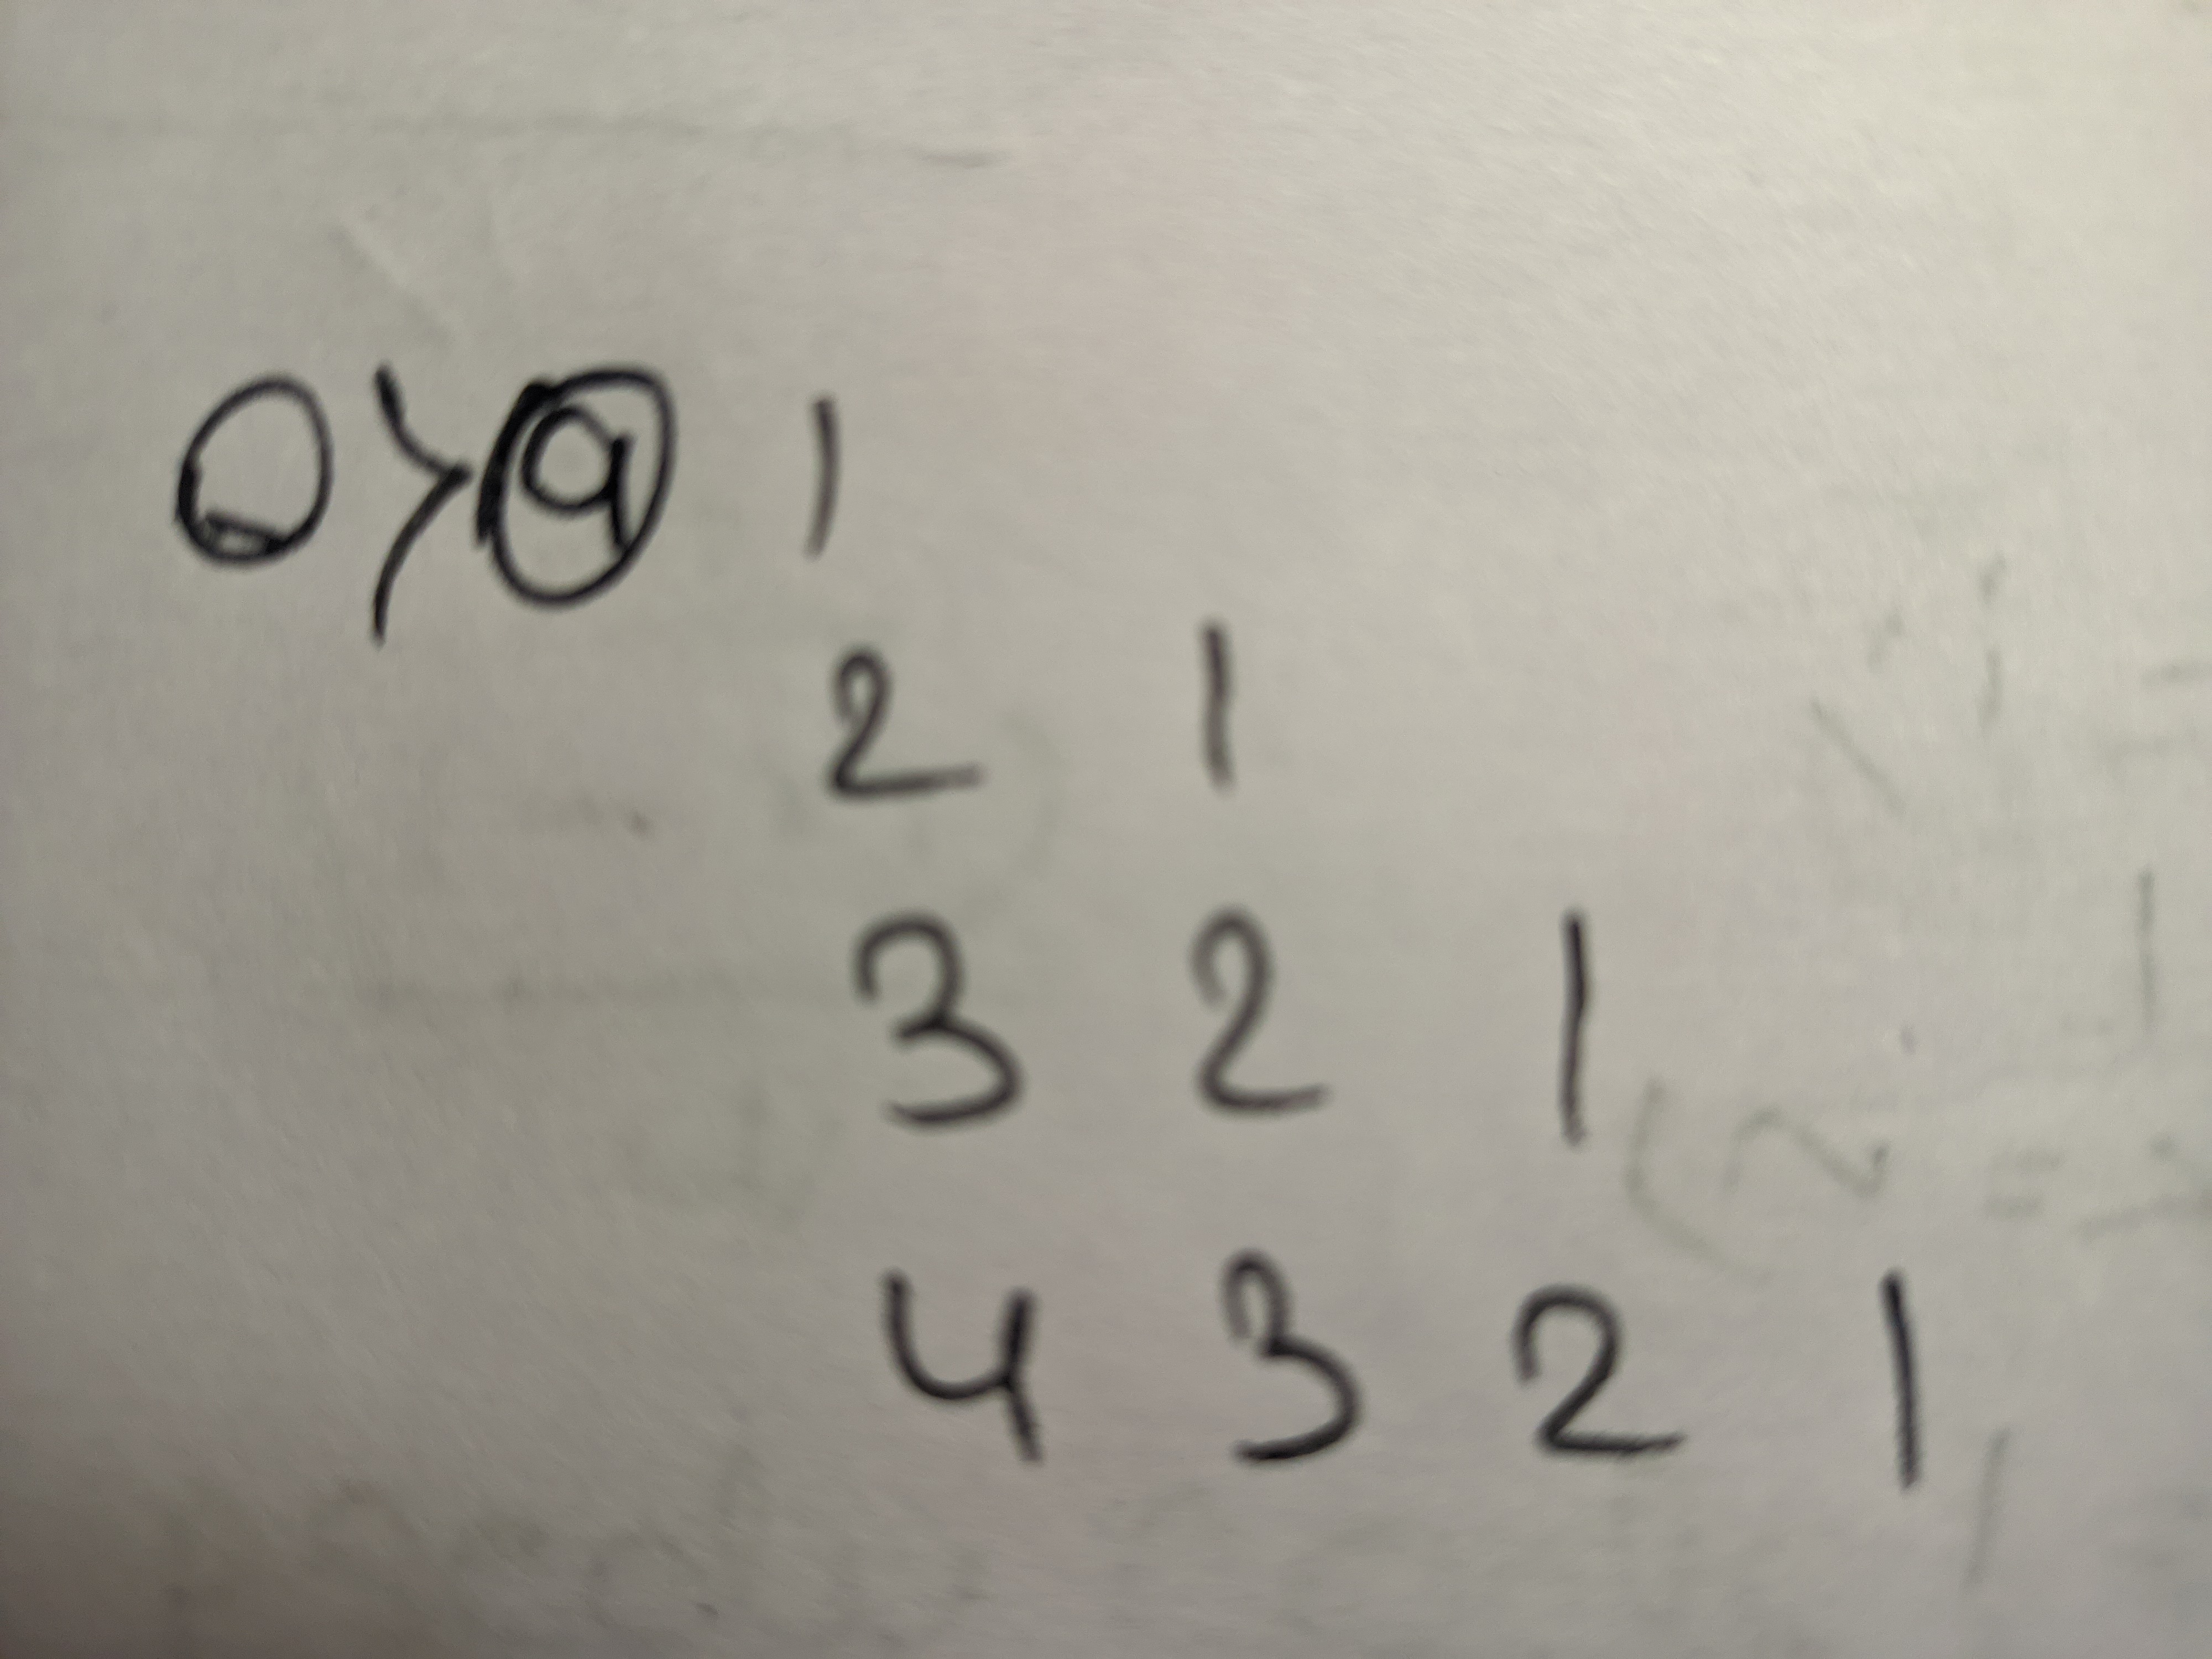 Q) (a) 1
2 1
3 2 1
4 3 2 1